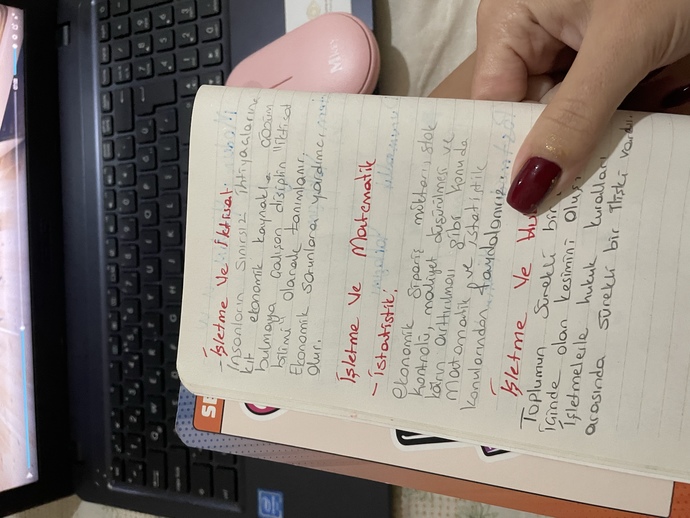 - İşletme ve İktisat:
İnsanların sınırsız ihtiyaçlarını
kıt ekonomik kaynakla çözüm
bulmaya çalışan disiplin "iktisat
bilimi" olarak tanımlanır.
Ekonomik sorunlara yardımcı
olur.
İşletme ve Matematik
- İstatistik:
ekonomik sipariş miktarı, stok
kontrolü, maliyet düşürülmesi ve
karın arttırılması gibi konuda
Matematik ve istatistik
konularından faydalanılır.
- İşletme ve
Toplumun sürekli bir
içinde olan kesimini oluş
İşletmelerle hukuk kuralları
arasında sürekli bir ilişki vardır.